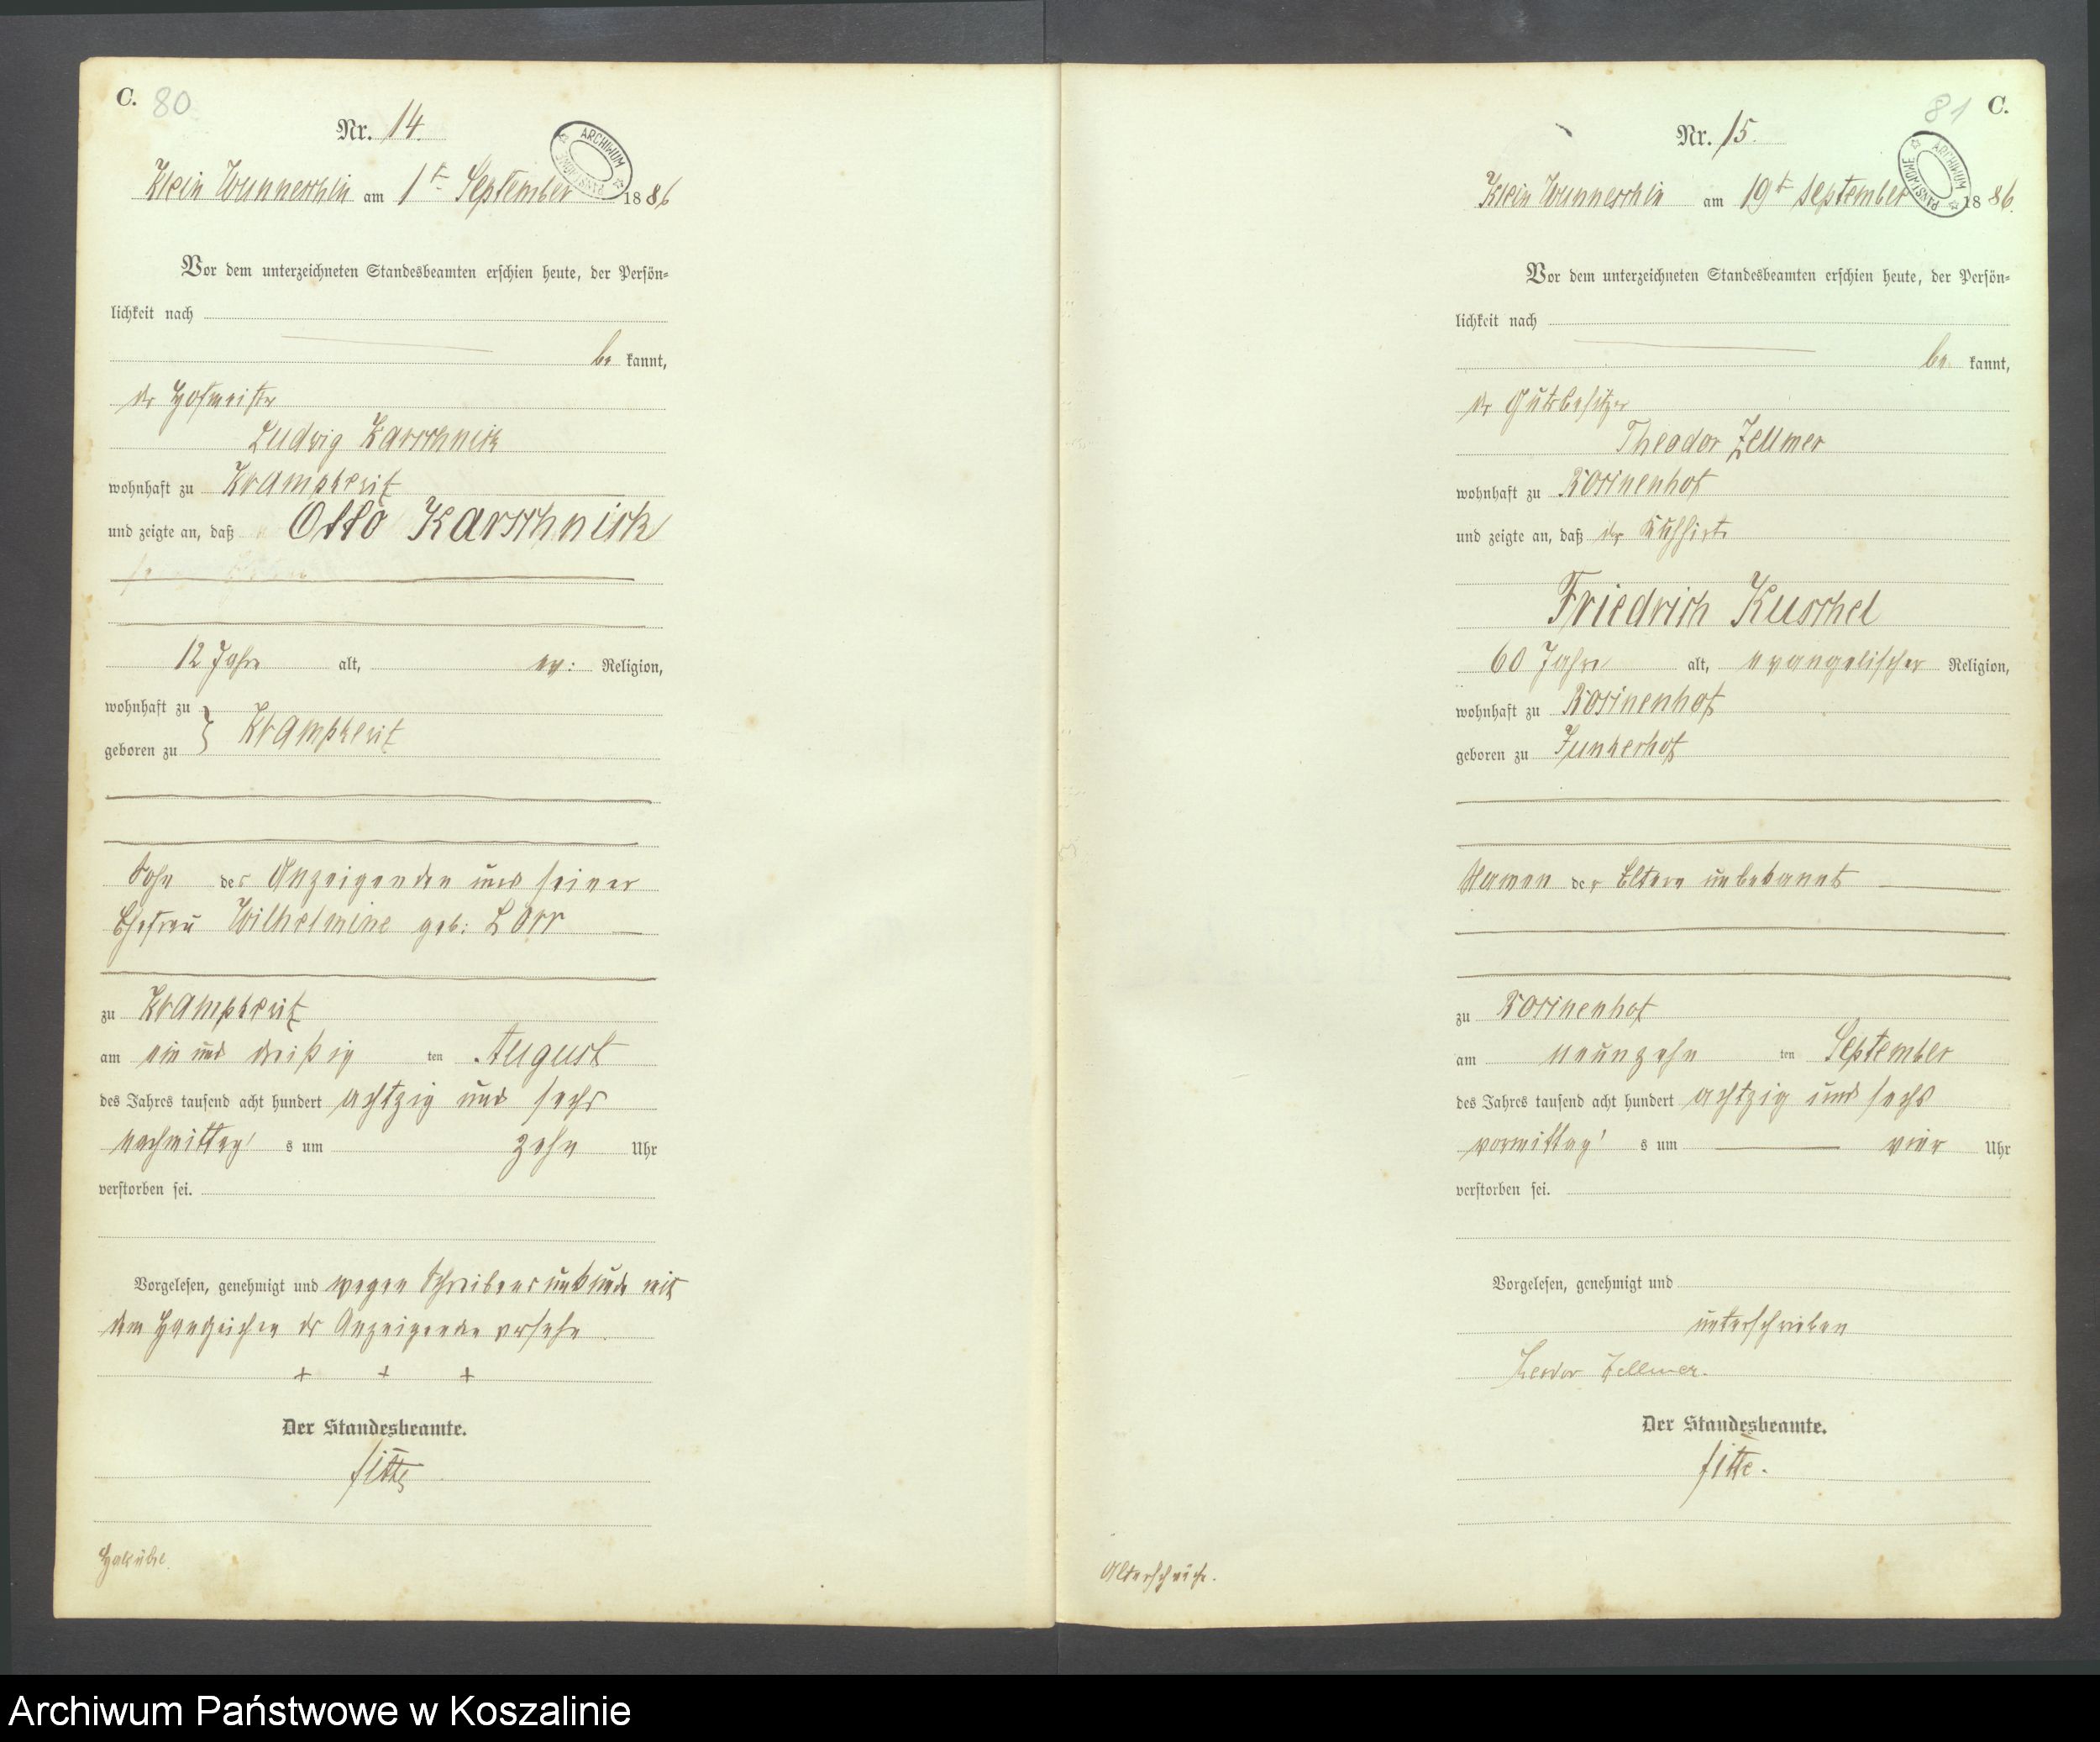 C. 80
Nr. 14.
ARCHIWUM PAŃSTWOWE
Klein Wunneschin am 1t September 1886
Vor dem unterzeichneten Standesbeamten erschien heute, der Persön-
lichkeit nach
be kannt,
der Hofmeister
Ludwig Karschnick
wohnhaft zu Krampkewitz
und zeigte an, daß Otto Karschnick
12 Jahre alt, ev: Religion,
wohnhaft zu
geboren zu } Krampkewitz
Sohn des Anzeigenden und seiner
Ehefrau Wilhelmine geb: Lorr
zu Krampkewitz
am ein und dreißig ten August
des Jahres tausend acht hundert achtzig und sechs
nachmittag's um zehn Uhr
verstorben sei.
Vorgelesen, genehmigt und wegen Schreibensunkunde mit
dem Handzeichen des Anzeigenden versehn.
+ + +
Der Standesbeamte.
81 C.
Nr. 15.
ARCHIWUM PAŃSTWOWE
Klein Wunneschin am 19t September 1886.
Vor dem unterzeichneten Standesbeamten erschien heute, der Persön-
lichkeit nach
be kannt,
der Gutsbesitzer
Theodor Zellmer
wohnhaft zu Rosinenhof
und zeigte an, daß der Kuhhirte
Friedrich Kuschel
60 Jahre alt, evangelischer Religion,
wohnhaft zu Rosinenhof
geboren zu Junkerhof
Namen der Eltern unbekannt
zu Rosinenhof
am neunzehn ten September
des Jahres tausend acht hundert achtzig und sechs
vormittag's um vier Uhr
verstorben sei.
Vorgelesen, genehmigt und
unterschrieben
Teodor Zellmer.
Der Standesbeamte.
Altersschwäche.
Archiwum Państwowe w Koszalinie